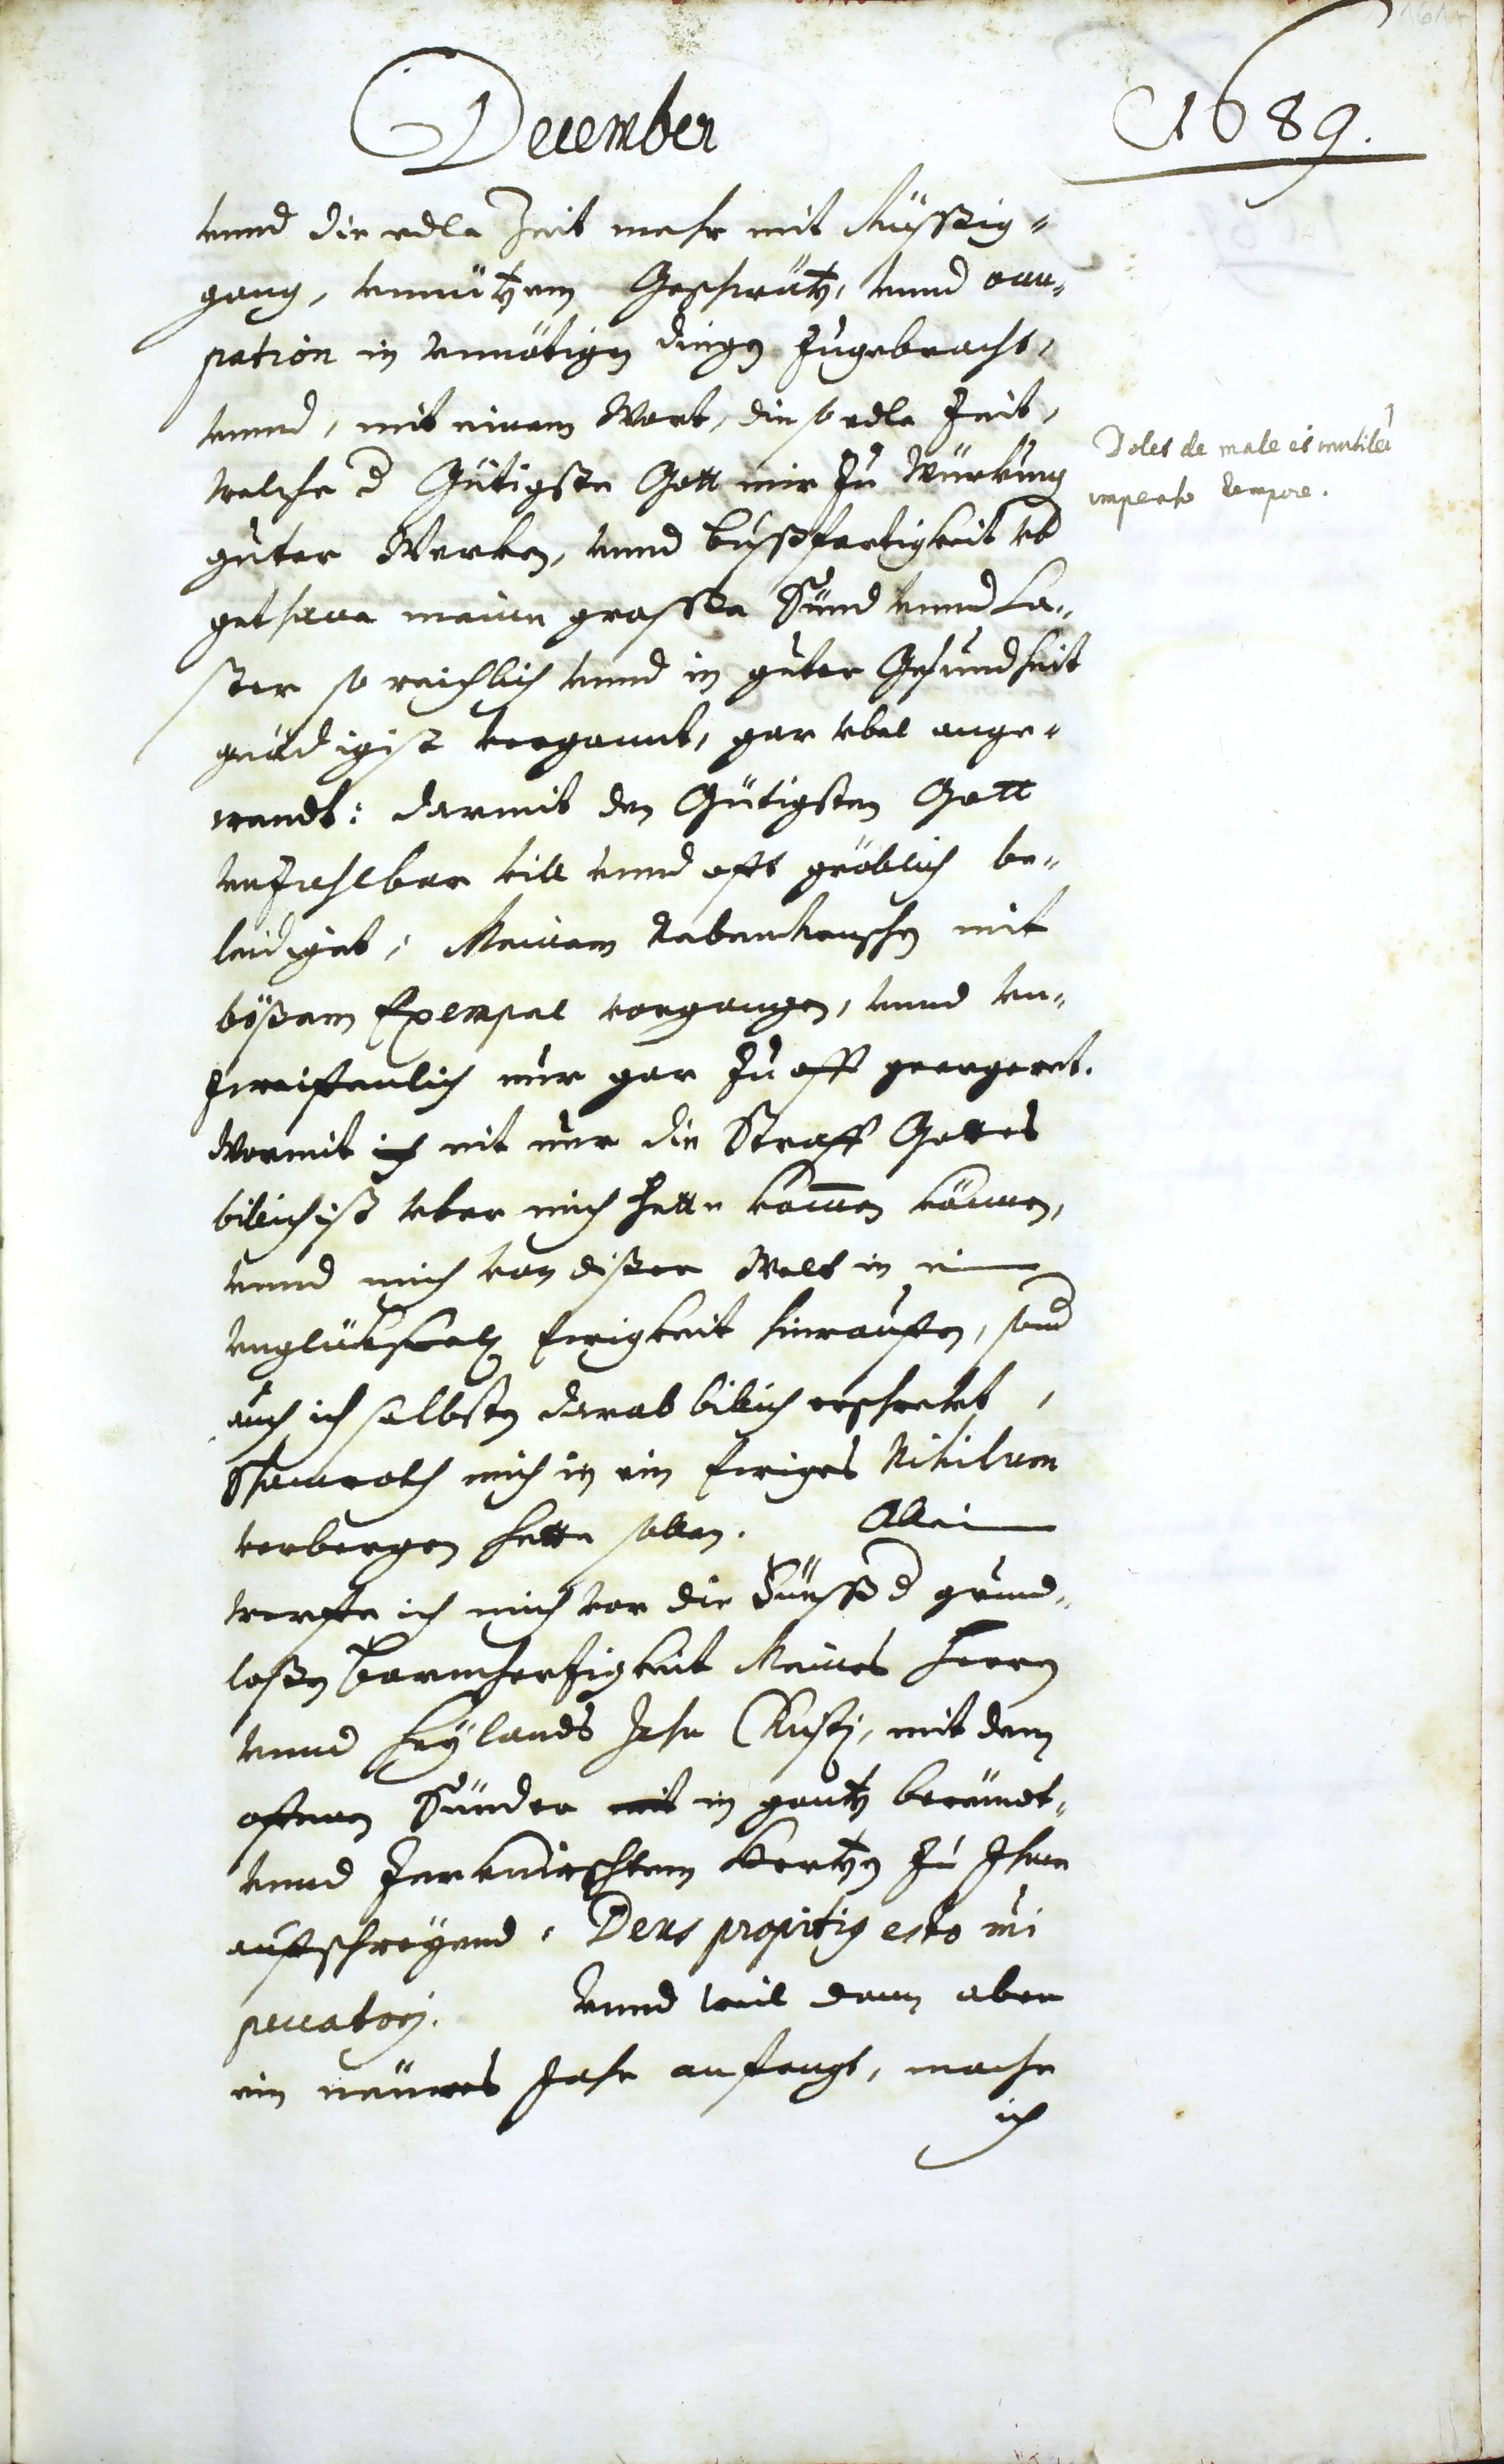 December
1689.
vnnd die edle Zeit mehr mit Müssig-
gang, vnnützem Geschwätz, vnnd occu-
pation in vnnötigen dingen zugebracht,
vnnd, mit einem Wort, die so edle Zeit,
welche d Gütigste Gott mir zu Würkung
guter Werken, vnnd bussfertigkeit vb
gethane meine grosse Sünd vnnd La-
ster so reichlich vnnd in guter Gesundheit
gnädigist vergonnt, gar vbel ange-
wendt: darmit den Gütigsten Gott
vnzahlbar vill vnnd offt gröblich be-
leidiget, Meinem Nebentmenschen mit
bößem Exempel vorgangen, vnnd vn-
zweifenlich nur gar zu offt geergeret.
Wormit ich nit nur die Straff Gottes
billichist vber mich hette kommen können,
vnnd mich von disser Welt in ein
vnglükseelig Ewigkeit hinrauffen, sond
auch ich selbsten darab billich erschrekt,
Schamroth mich in ein Ewiges Nihilum
verbergen hette sollen. Allein
werffe ich mich vor die Füesse d grund-
loßen Barmhertzigkeit Meines Herren
vnnd Heylands Jesu Christi, mit dem
offnen Sünder mit in gantz bereüwt-
vnnd zerknirschtem Hertzen zu Ihme
auffschreyend: Deus propitius esto mi
peccatori. Vnnd weil dann aber
ein neüwes Jahr anfangt, mache
ich
Dolet de male et inutiliter
impenso tempore.